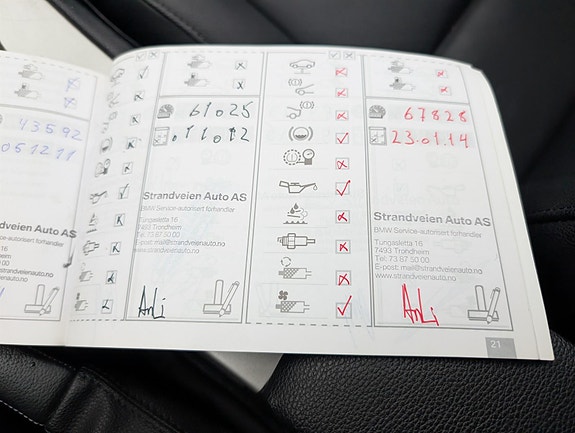 43592
051211
61025
.11.012
Strandveien Auto AS
BMW Service-autorisert forhandler
Tungasletta 16
7493 Trondheim
Tel: 73 87 50 00
E-post: mail@strandveienauto.no
www.strandveienauto.no
AnLi
67828
23.01.14
Strandveien Auto AS
BMW Service-autorisert forhandler
Tungasletta 16
7493 Trondheim
Tel: 73 87 50 00
E-post: mail@strandveienauto.no
www.strandveienauto.no
AnLi
21